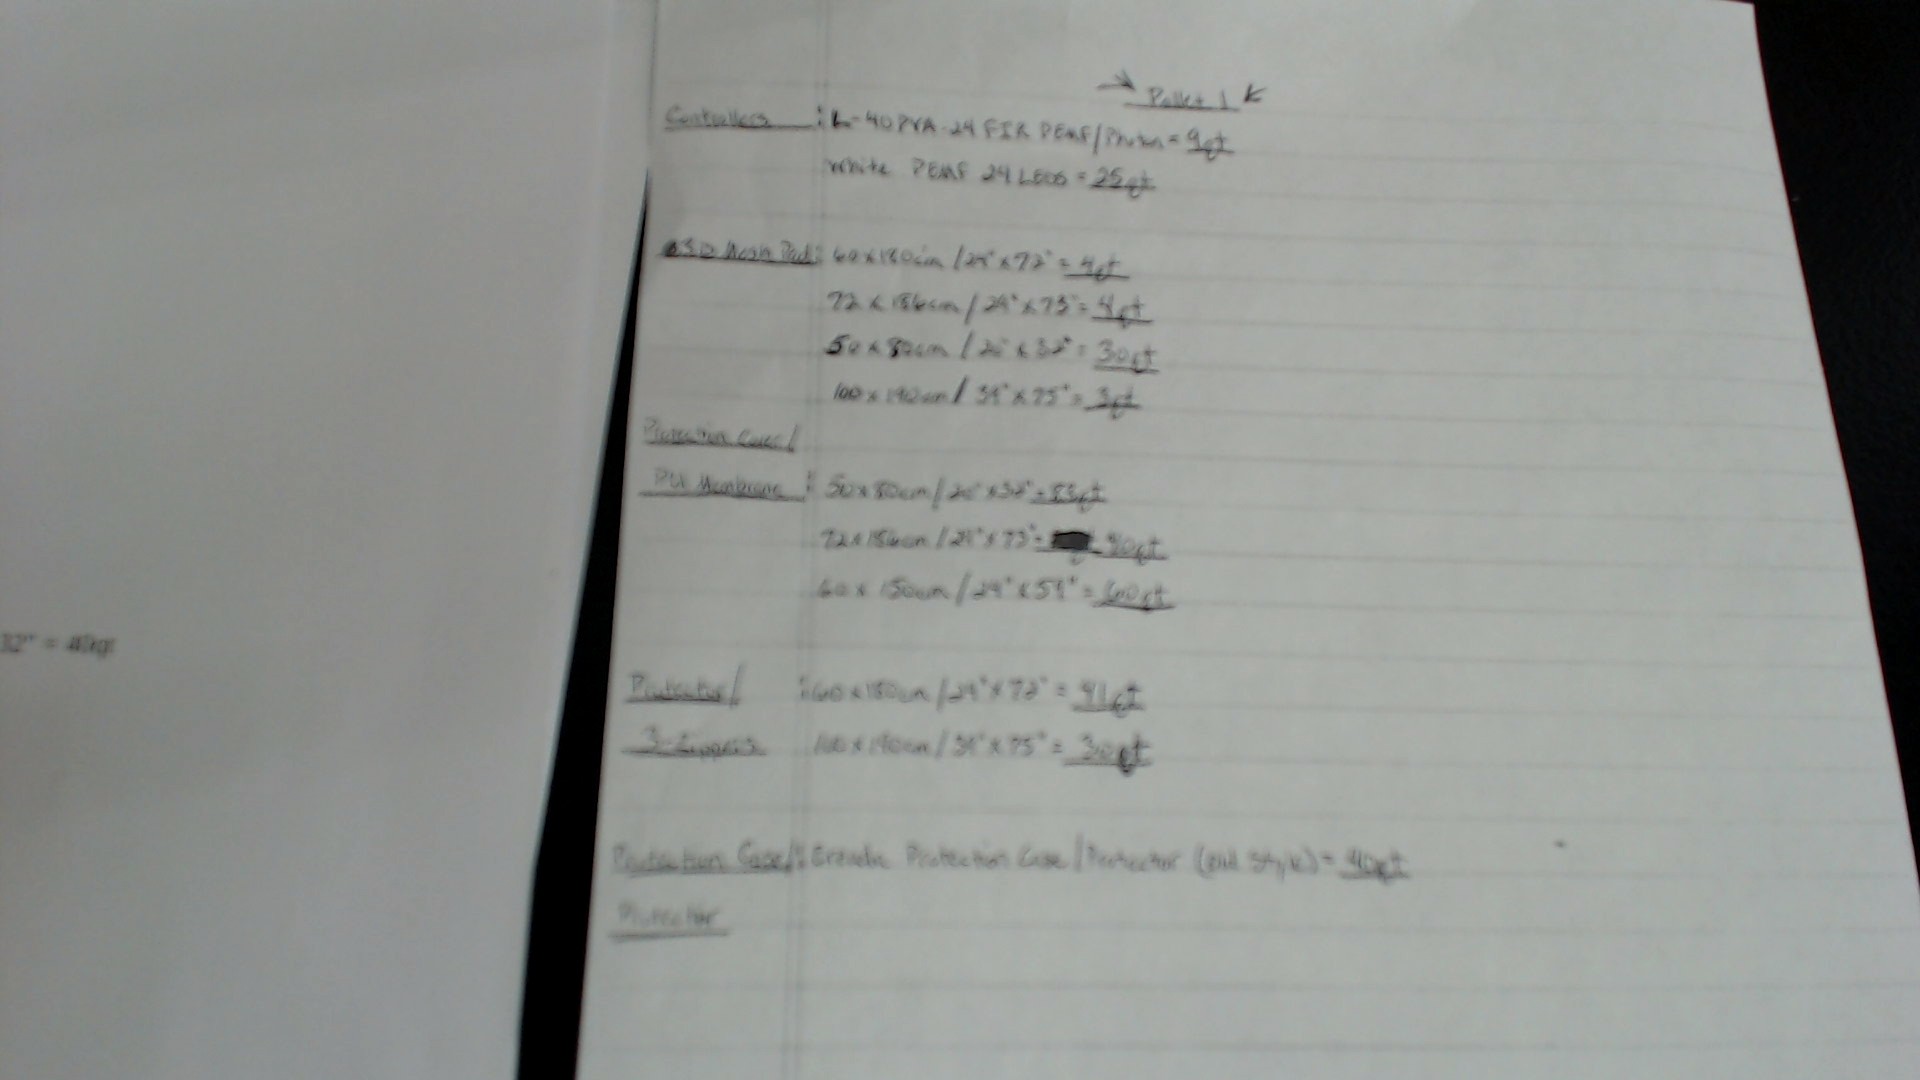 → Pallet 1 ←
Controllers : L-40 PVA-24 FIR PEMF/Photon = 9qt
White PEMF 24 LEDS = 25qt
3D Mesh Pad: 60x180cm / 24" x 72" = 4qt
72 x 186cm / 29" x 73" = 4qt
50 x 80cm / 20" x 32" = 30qt
100 x 190cm / 39" x 75" = 3qt
Protection Cover/
PU Membrane : 50x80cm / 20" x 32" = qt
72x186cm / 29" x 73" = qt
60 x 150cm / 24" x 59" = 60qt
32" =
Protector/ : 60x180cm / 24" x 72" = 91qt
3-Zippers 100 x 190cm / 39" x 75" = 30qt
Protection Case/: Protection Case / Protector (old Style) = 40qt
Protector